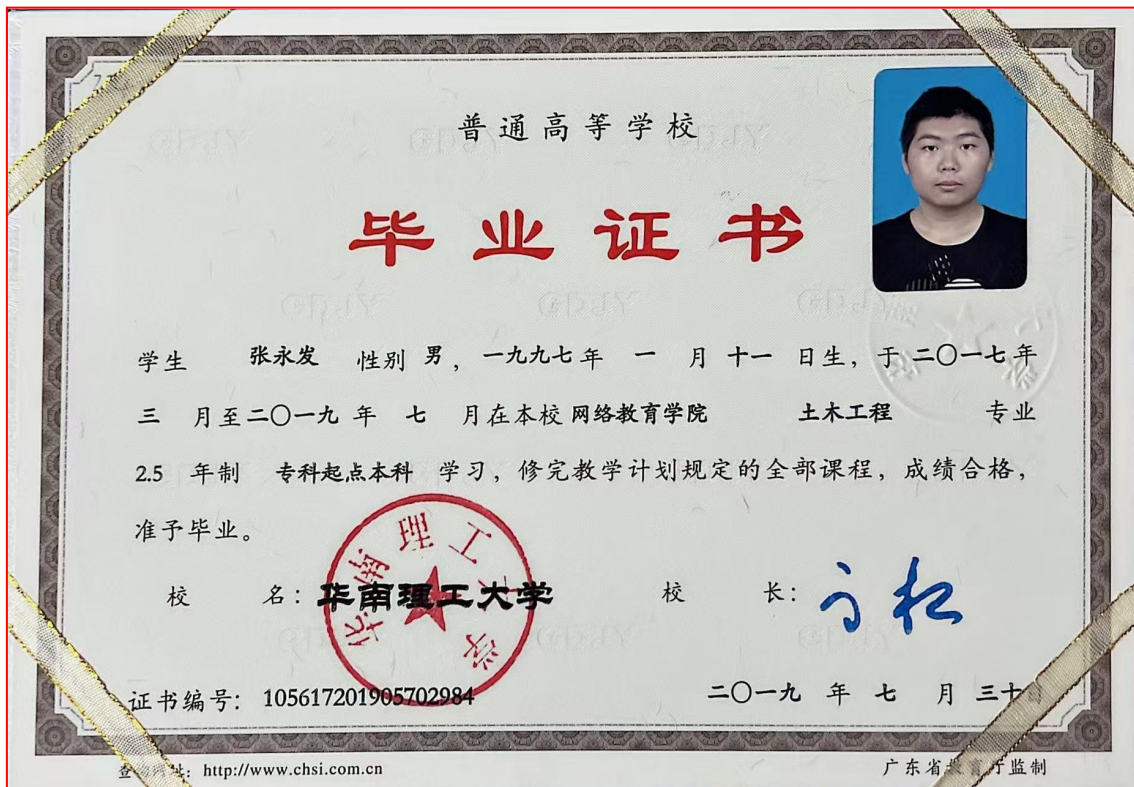 普通高等学校
毕业证书
学生 张永发 性别 男，一九九七年 一 月 十一 日生，于 二〇一七年
三 月至二〇一九 年 七 月在本校 网络教育学院 土木工程 专业
2.5 年制 专科起点本科 学习，修完教学计划规定的全部课程，成绩合格，
准予毕业。
校 名：华南理工大学 校 长：
华南理工大学
证书编号：105617201905702984 二〇一九 年 七 月 三十日
查询网址：http://www.chsi.com.cn 广东省教育厅监制